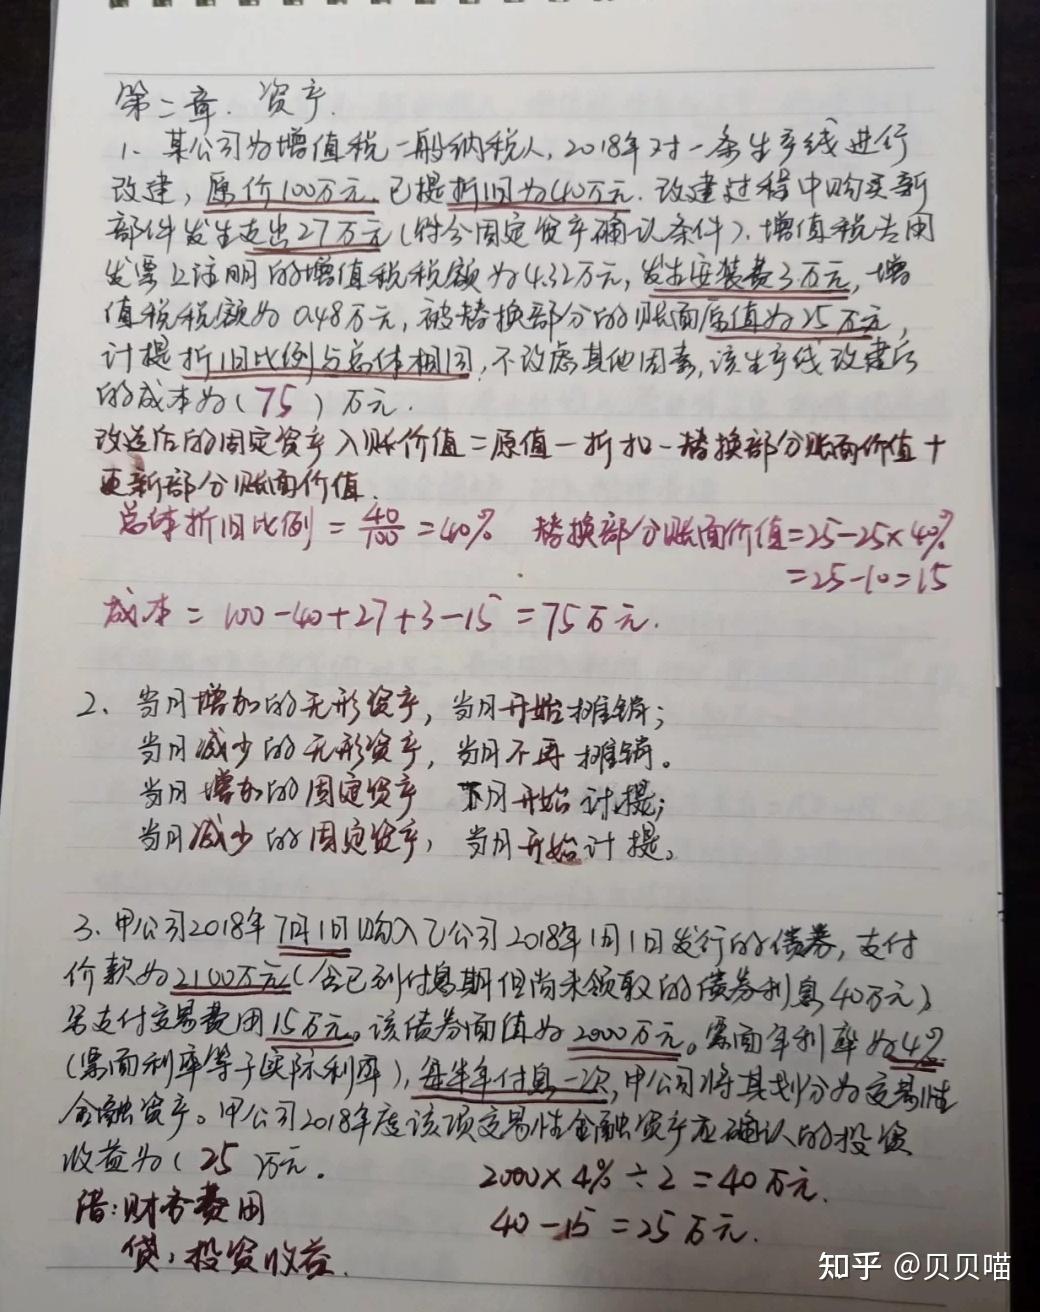 第二章. 资产.
1、某公司为增值税一般纳税人,2018年对一条生产线进行
改建,原价100万元,已提折旧为40万元.改建过程中购买新
部件发生支出27万元(符合固定资产确认条件).增值税专用
发票上注明的增值税税额为4.32万元,发生安装费3万元,增
值税税额为0.48万元,被替换部分的账面原值为25万元,
计提折旧比例与总体相同,不考虑其他因素,该生产线改建后
的成本为(75)万元.
改造后的固定资产入账价值=原值-折扣-替换部分账面价值+
更新部分账面价值.
总体折旧比例=40/100=40% 替换部分账面价值=25-25×40%
=25-10=15
成本=100-40+27+3-15=75万元.
2、当月增加的无形资产,当月开始摊销;
当月减少的无形资产,当月不再摊销。
当月增加的固定资产 下月开始计提;
当月减少的固定资产,当月开始计提。
3、甲公司2018年7月1日购入乙公司2018年1月1日发行的债券,支付
价款为2100万元(含已到付息期但尚未领取的债券利息40万元)
另支付交易费用15万元。该债券面值为2000万元。票面年利率为4%
(票面利率等于实际利率),每半年付息一次,甲公司将其划分为交易性
金融资产。甲公司2018年度该项交易性金融资产应确认的投资
收益为(25)万元.
2000×4%÷2=40万元.
借:财务费用
40-15=25万元.
贷:投资收益.
知乎 @贝贝喵